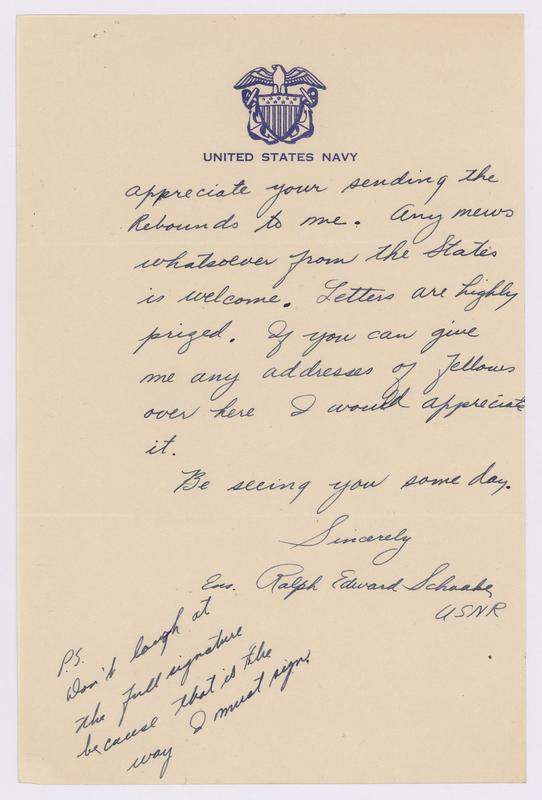 UNITED STATES NAVY
appreciate your sending the
Rebounds to me. Any news
whatsoever from the States
is welcome. Letters are highly
prized. If you can give
me any addresses of fellows
over here I would appreciate
it.
Be seeing you some day.
Sincerely
Ens. Ralph Edward Schaake
USNR
P.S.
Don't laugh at
the full signature
because that is the
way I must sign.